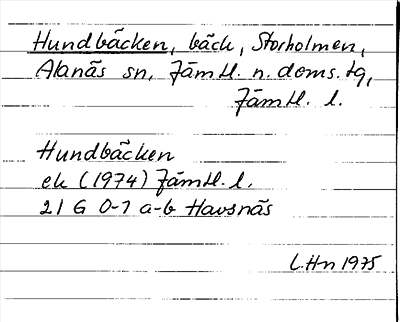 Hundbäcken, bäck, Storholmen,
Alanäs sn, Jämtl. n. doms. tg,
Jämtl. l.
Hundbäcken
ek (1974) Jämtl. l.
21 G 0-1 a-b Havsnäs
L.Hn 1975